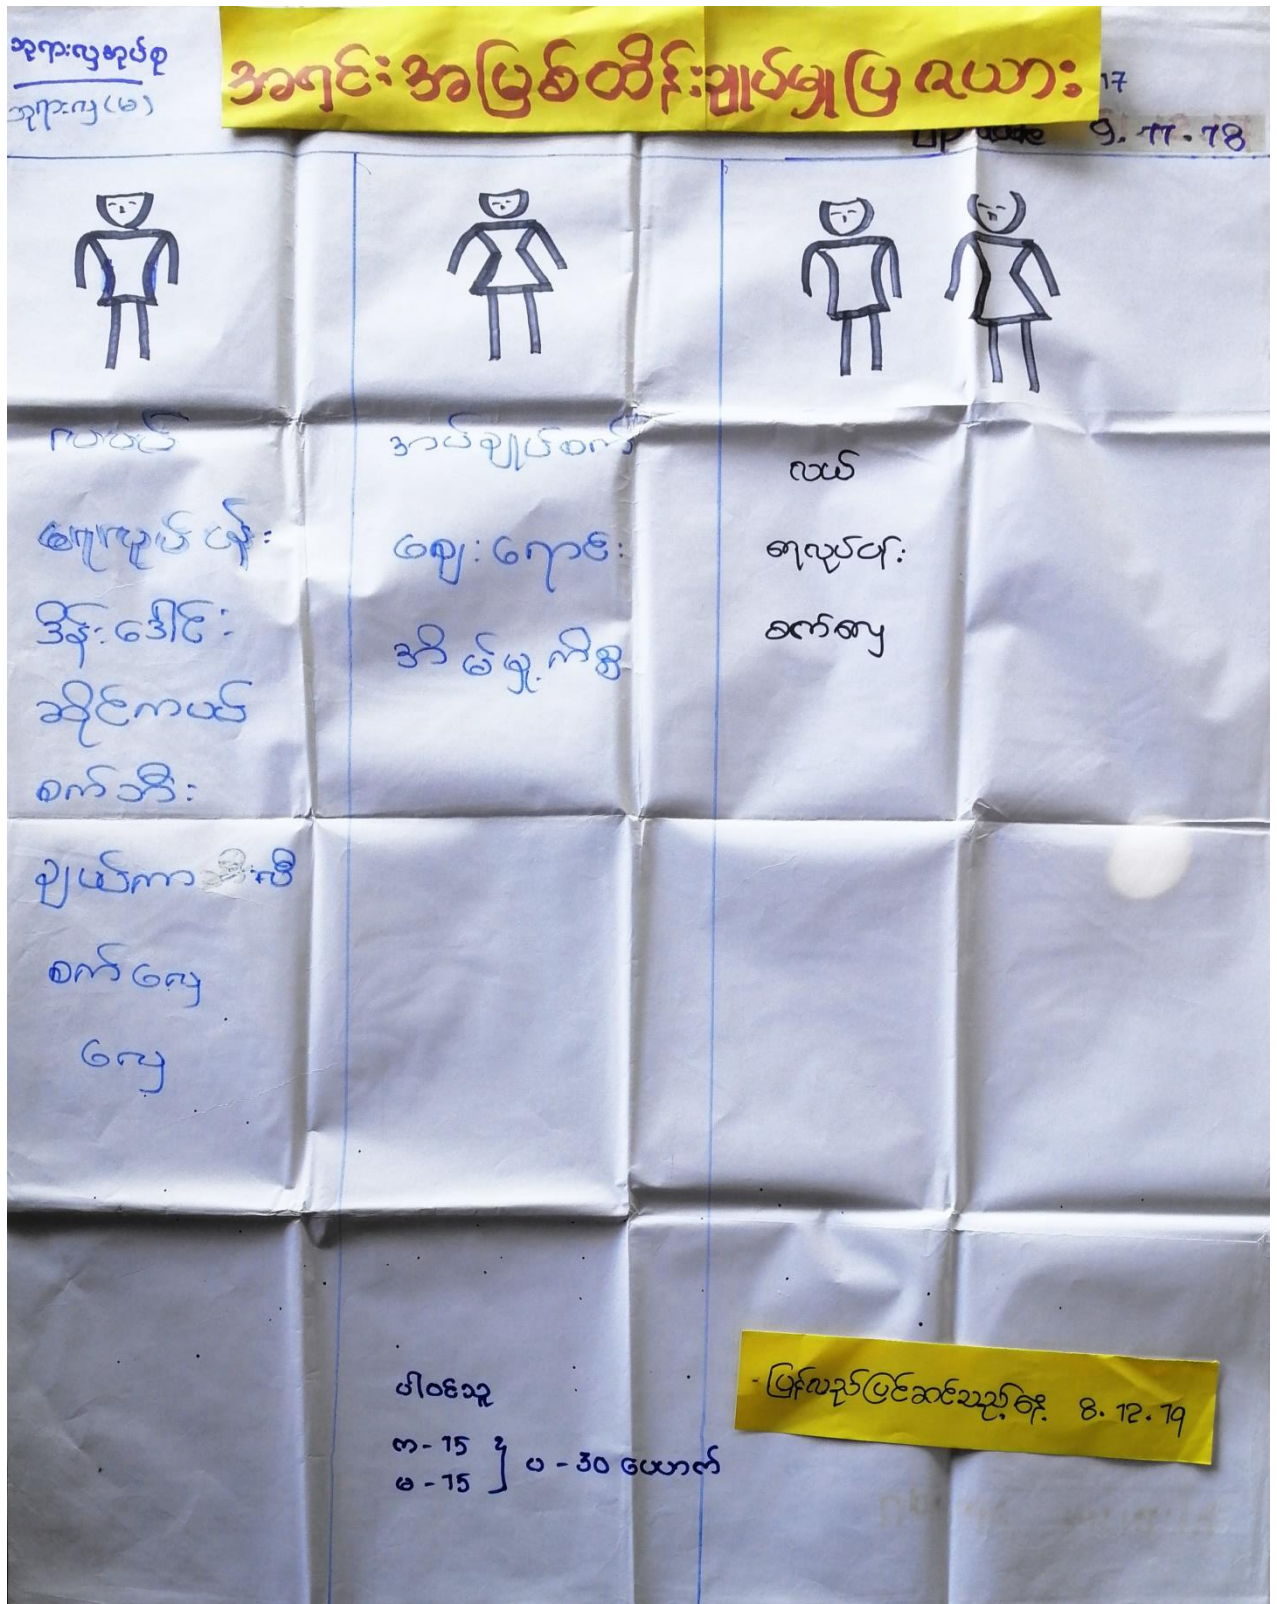 ဘုရားလှအုပ်စု
ဘုရားလှ(မ)
အရင်းအမြစ်ထိန်းချုပ်မှုပြဇယား
17
Update 9.11.18
လယ်
ရေလုပ်ငန်း
ဒိန်းဒေါင်း
ဆိုင်ကယ်
စက်ဘီး
ချယ်ကာ
စက်လှေ
လှေ
အပ်ချုပ်စက်
ဈေးရောင်း
အိမ်မှုကိစ္စ
လယ်
ရေလုပ်ငန်း
စက်လှေ
ပါဝင်သူ
က - 15
မ - 15
ပ - 30 ယောက်
- ပြန်လည်ပြင်ဆင်သည့်နေ့ 8.12.19